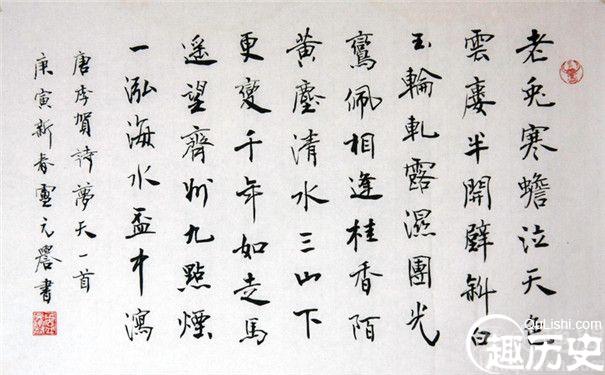 老兔寒蟾泣天色
雲廔半開壁斜白
玉輪軋露濕團光
鸞佩相逢桂香陌
黄塵清水三山下
更變千年如走馬
遥望齊州九點煙
一泓海水盃中瀉
唐李賀詩夢天一首
庚寅新春元書
QuLishi.com
趣历史